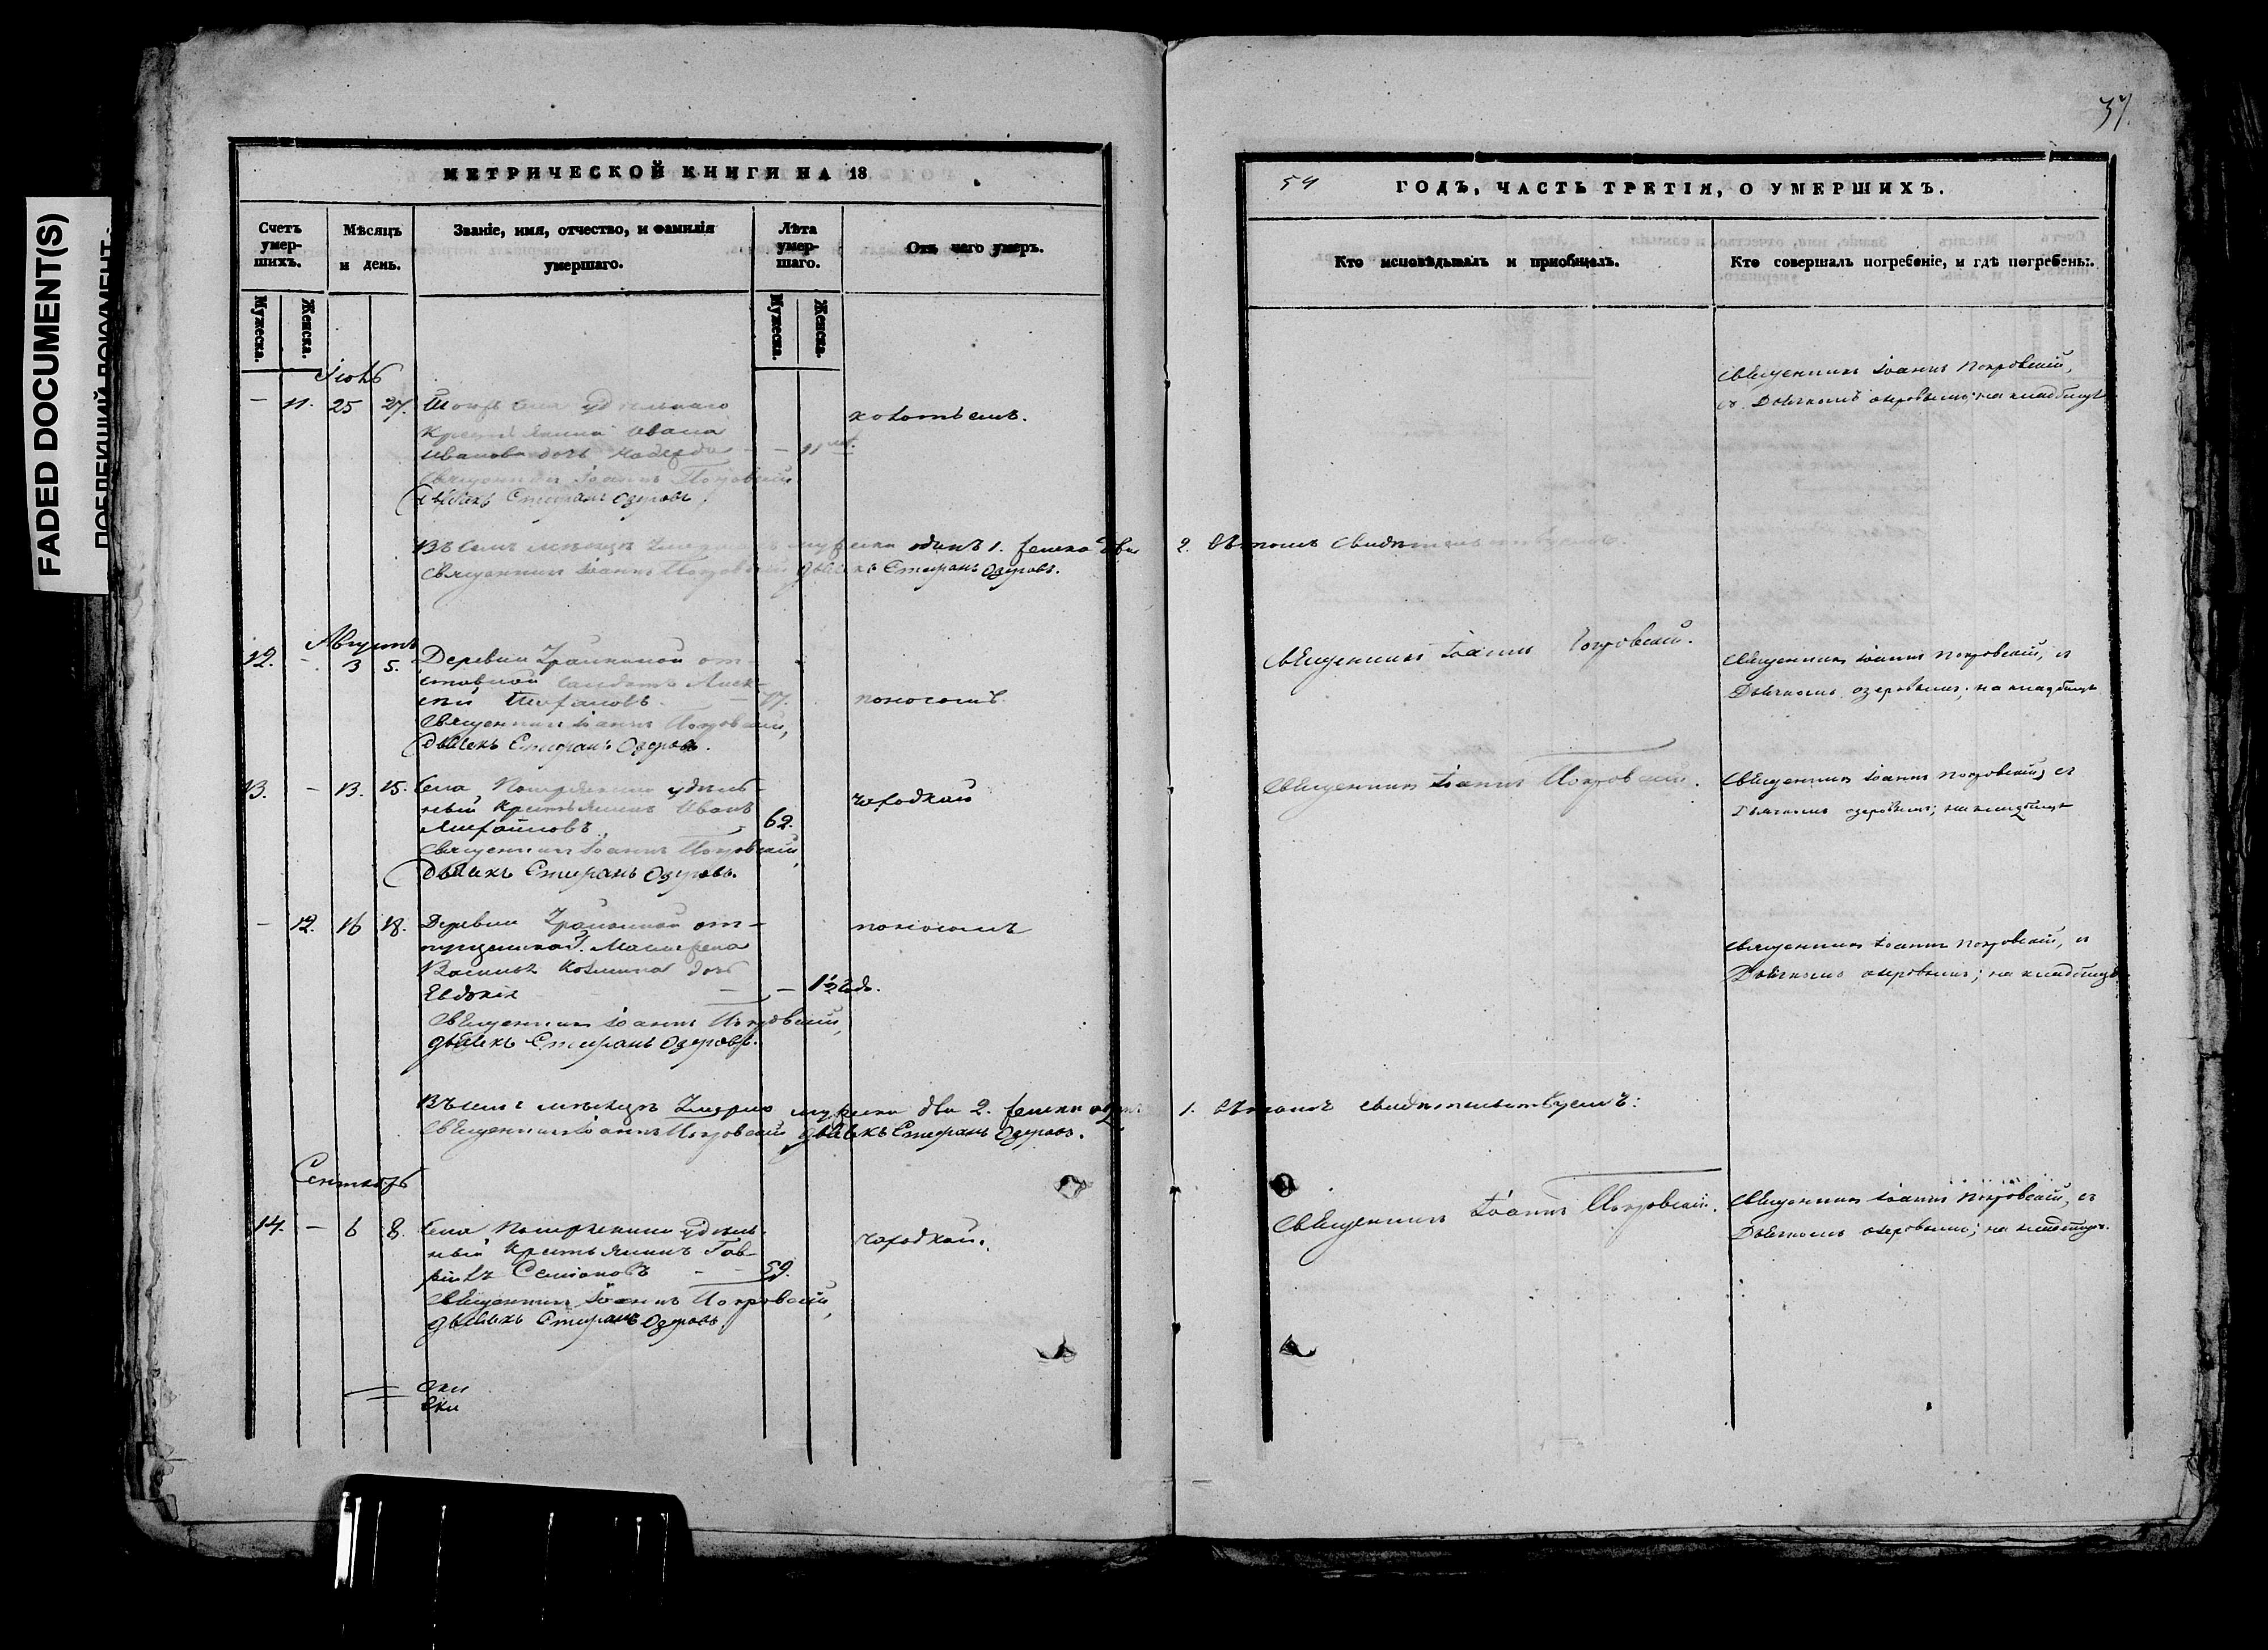 FADED DOCUMENT(S)
37.
МЕТРИЧЕСКОЙ КНИГИ НА 18
Счетъ умер-шихъ.
Мѣсяцъ и день.
Званіе, имя, отчество, и фамилія умершаго.
Лѣта умер-шаго.
Отъ чего умеръ.
Мужеска.
Женска.
Мужеска.
Женска.
Іюль
— 11. 25 27. того села удѣльнаго
крестьянина Ивана
Иванова дочь Надежда — — 11
Священникъ Іоаннъ Покровскій
дьячекъ Стефанъ Озеровъ.
Въ семъ мѣсяцѣ умерло мужеска одинъ 1. женска два
Священникъ Іоаннъ Покровскій дьячекъ Стефанъ Озеровъ.
Августъ
12. — 3 5. Деревни от-
ставной солдатъ Алек-
сѣй — 77. поносомъ
Священникъ Іоаннъ Покровскій,
дьячекъ Стефанъ Озеровъ.
13. — 13. 15. Села удѣль-
ный крестьянинъ Иванъ
Михайловъ 62. чахоткой
Священникъ Іоаннъ Покровскій,
дьячекъ Стефанъ Озеровъ.
— 12. 16 18. Деревни от- поносомъ
Козмина дочь
Евдокія — — 1½ года.
Священникъ Іоаннъ Покровскій,
дьячекъ Стефанъ Озеровъ.
Въ семъ мѣсяцѣ умерло мужеска два 2. женска одна
Священникъ Іоаннъ Покровскій дьячекъ Стефанъ Озеровъ.
Сентябрь
14. — 6 8. Села удѣль- чахоткой.
ный крестьянинъ Гав-
ріилъ Семіоновъ — — 59.
Священникъ Іоаннъ Покровскій,
дьячекъ Стефанъ Озеровъ.
54 ГОДЪ, ЧАСТЬ ТРЕТІЯ, О УМЕРШИХЪ.
Кто исповѣдывалъ и пріобщалъ.
Кто совершалъ погребеніе, и гдѣ погребены:.
Священникъ Іоаннъ Покровскій,
съ Дьячкомъ Озеровымъ: на кладбищѣ
2. въ томъ свидѣтельствуемъ.
Священникъ Іоаннъ Покровскій.
Священникъ Іоаннъ Покровскій, съ
Дьячкомъ Озеровымъ; на кладбищѣ
Священникъ Іоаннъ Покровскій.
Священникъ Іоаннъ Покровскій, съ
Дьячкомъ Озеровымъ; на кладбищѣ
Священникъ Іоаннъ Покровскій, съ
Дьячкомъ Озеровымъ; на кладбищѣ
1. въ томъ свидѣтельствуемъ:
Священникъ Іоаннъ Покровскій.
Священникъ Іоаннъ Покровскій, съ
Дьячкомъ Озеровымъ; на кладбищѣ.